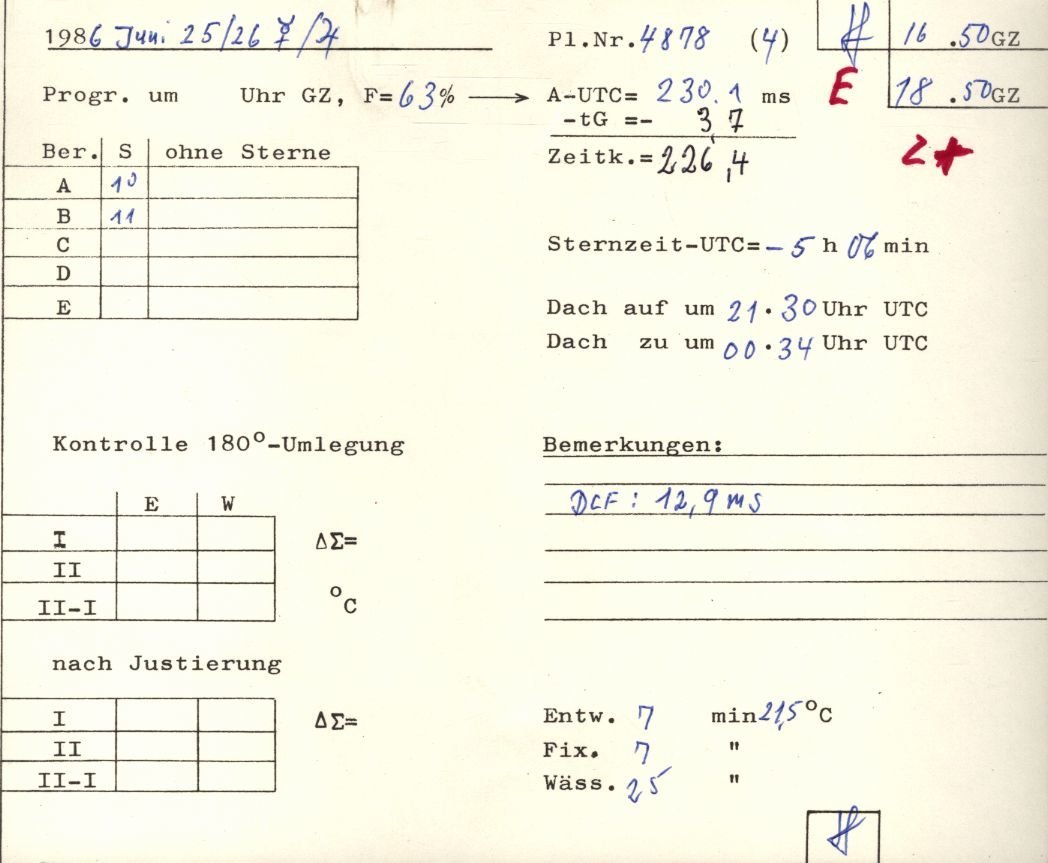 1986 Juni 25/26 ☿/♃
Pl.Nr. 4878 (4)
16 .50 GZ
Progr. um Uhr GZ, F= 63% → A-UTC= 230.1 ms
E
18 .50 GZ
-tG =- 3,7
Zeitk.= 226,4
2*
Ber. S ohne Sterne
A 10
B 11
C
D
E
Sternzeit-UTC= -5 h 06 min
Dach auf um 21.30 Uhr UTC
Dach zu um 00.34 Uhr UTC
Kontrolle 180°-Umlegung
E W
I ΔΣ=
II
II-I °C
nach Justierung
I ΔΣ=
II
II-I
Bemerkungen:
DCF: 12,9 ms
Entw. 7 min 21,5 °C
Fix. 7 "
Wäss. 25 "